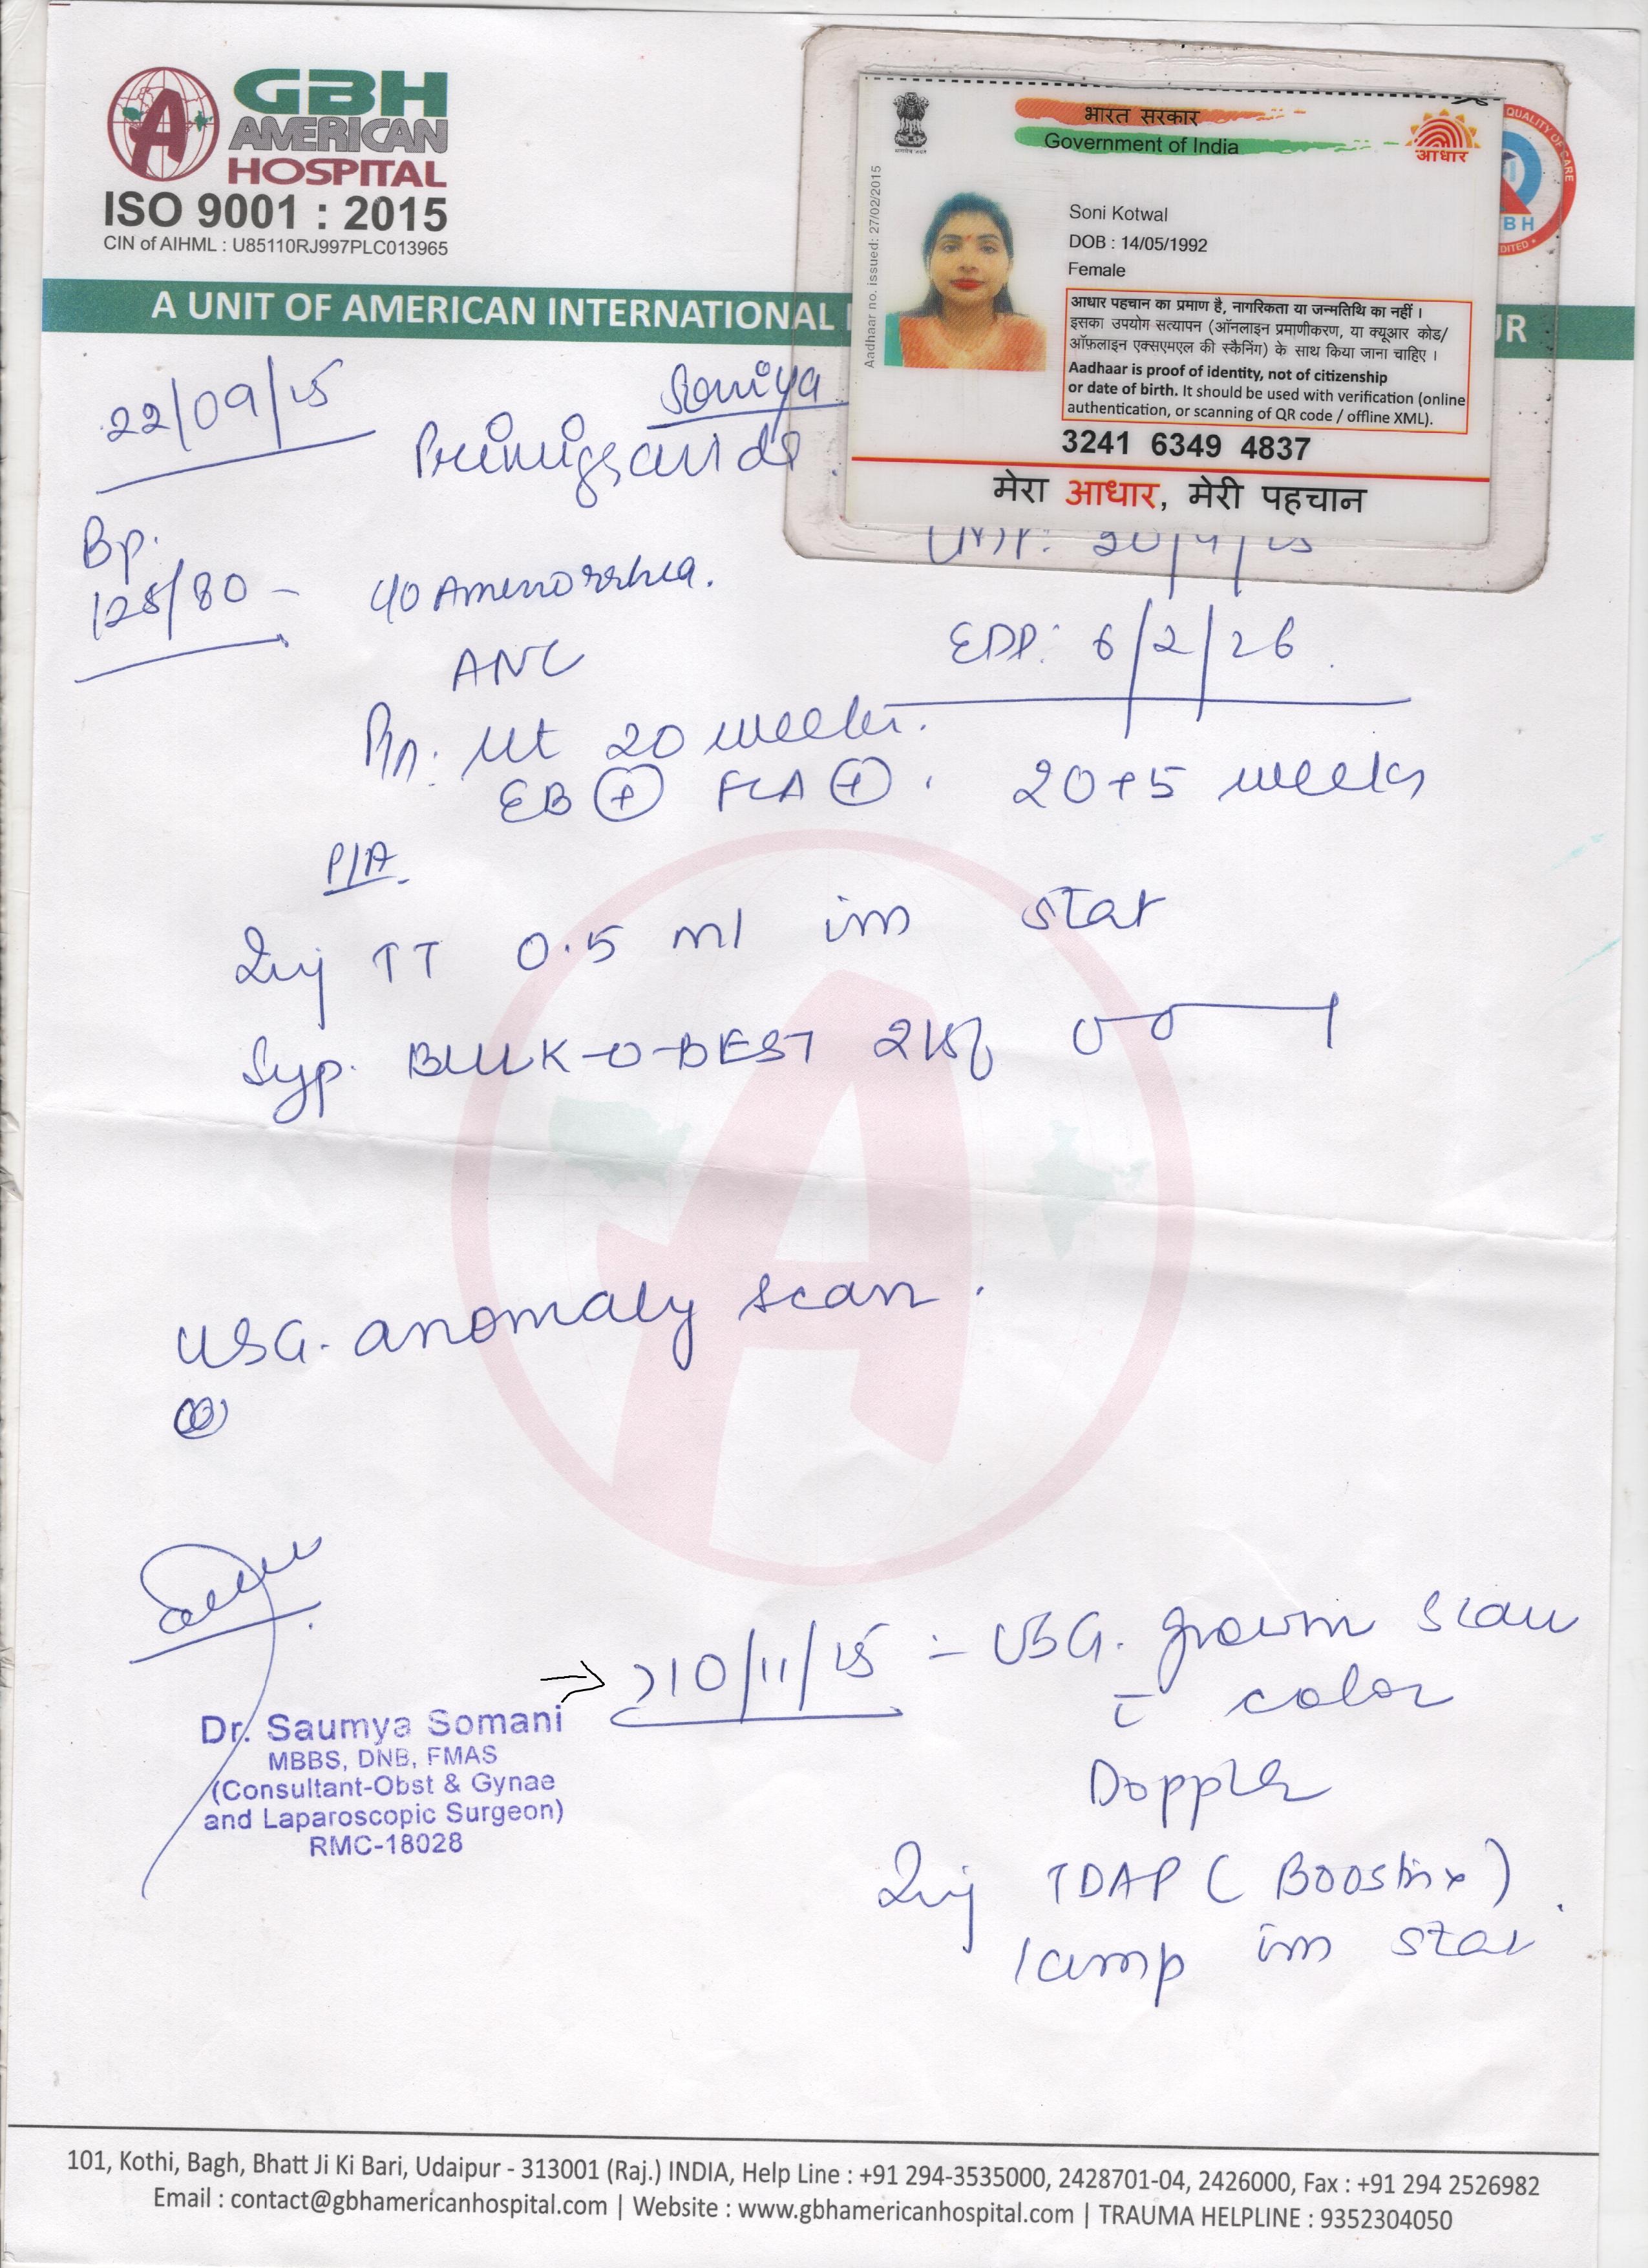 GBH
AMERICAN
HOSPITAL
ISO 9001 : 2015
CIN of AIHML : U85110RJ997PLC013965
A UNIT OF AMERICAN INTERNATIONAL
UR
QUALITY OF CARE
BH
भारत सरकार
Government of India
आधार
Aadhaar no. issued: 27/02/2015
Soni Kotwal
DOB : 14/05/1992
Female
आधार पहचान का प्रमाण है, नागरिकता या जन्मतिथि का नहीं ।
इसका उपयोग सत्यापन (ऑनलाइन प्रमाणीकरण, या क्यूआर कोड/
ऑफ़लाइन एक्सएमएल की स्कैनिंग) के साथ किया जाना चाहिए ।
Aadhaar is proof of identity, not of citizenship
or date of birth. It should be used with verification (online
authentication, or scanning of QR code / offline XML).
3241 6349 4837
मेरा आधार, मेरी पहचान
22/09/25
Soniya
Primigravida
Bp.
128/80
c/o Amenorrhea.
ANC
EDD: 6/2/26
Ut 20 weeks.
EB + FCA +
20+5 weeks
P/A
Inj TT 0.5 ml im stat
Syp. BULK-O-BEST 2tsf
USG. anomaly scan.
Dr. Saumya Somani
MBBS, DNB, FMAS
(Consultant-Obst & Gynae
and Laparoscopic Surgeon)
RMC-18028
10/11/25 - USG. growth scan
c color
Doppler
Inj TDAP (Boostrix)
1 amp im stat
101, Kothi, Bagh, Bhatt Ji Ki Bari, Udaipur - 313001 (Raj.) INDIA, Help Line : +91 294-3535000, 2428701-04, 2426000, Fax : +91 294 2526982
Email : contact@gbhamericanhospital.com | Website : www.gbhamericanhospital.com | TRAUMA HELPLINE : 9352304050